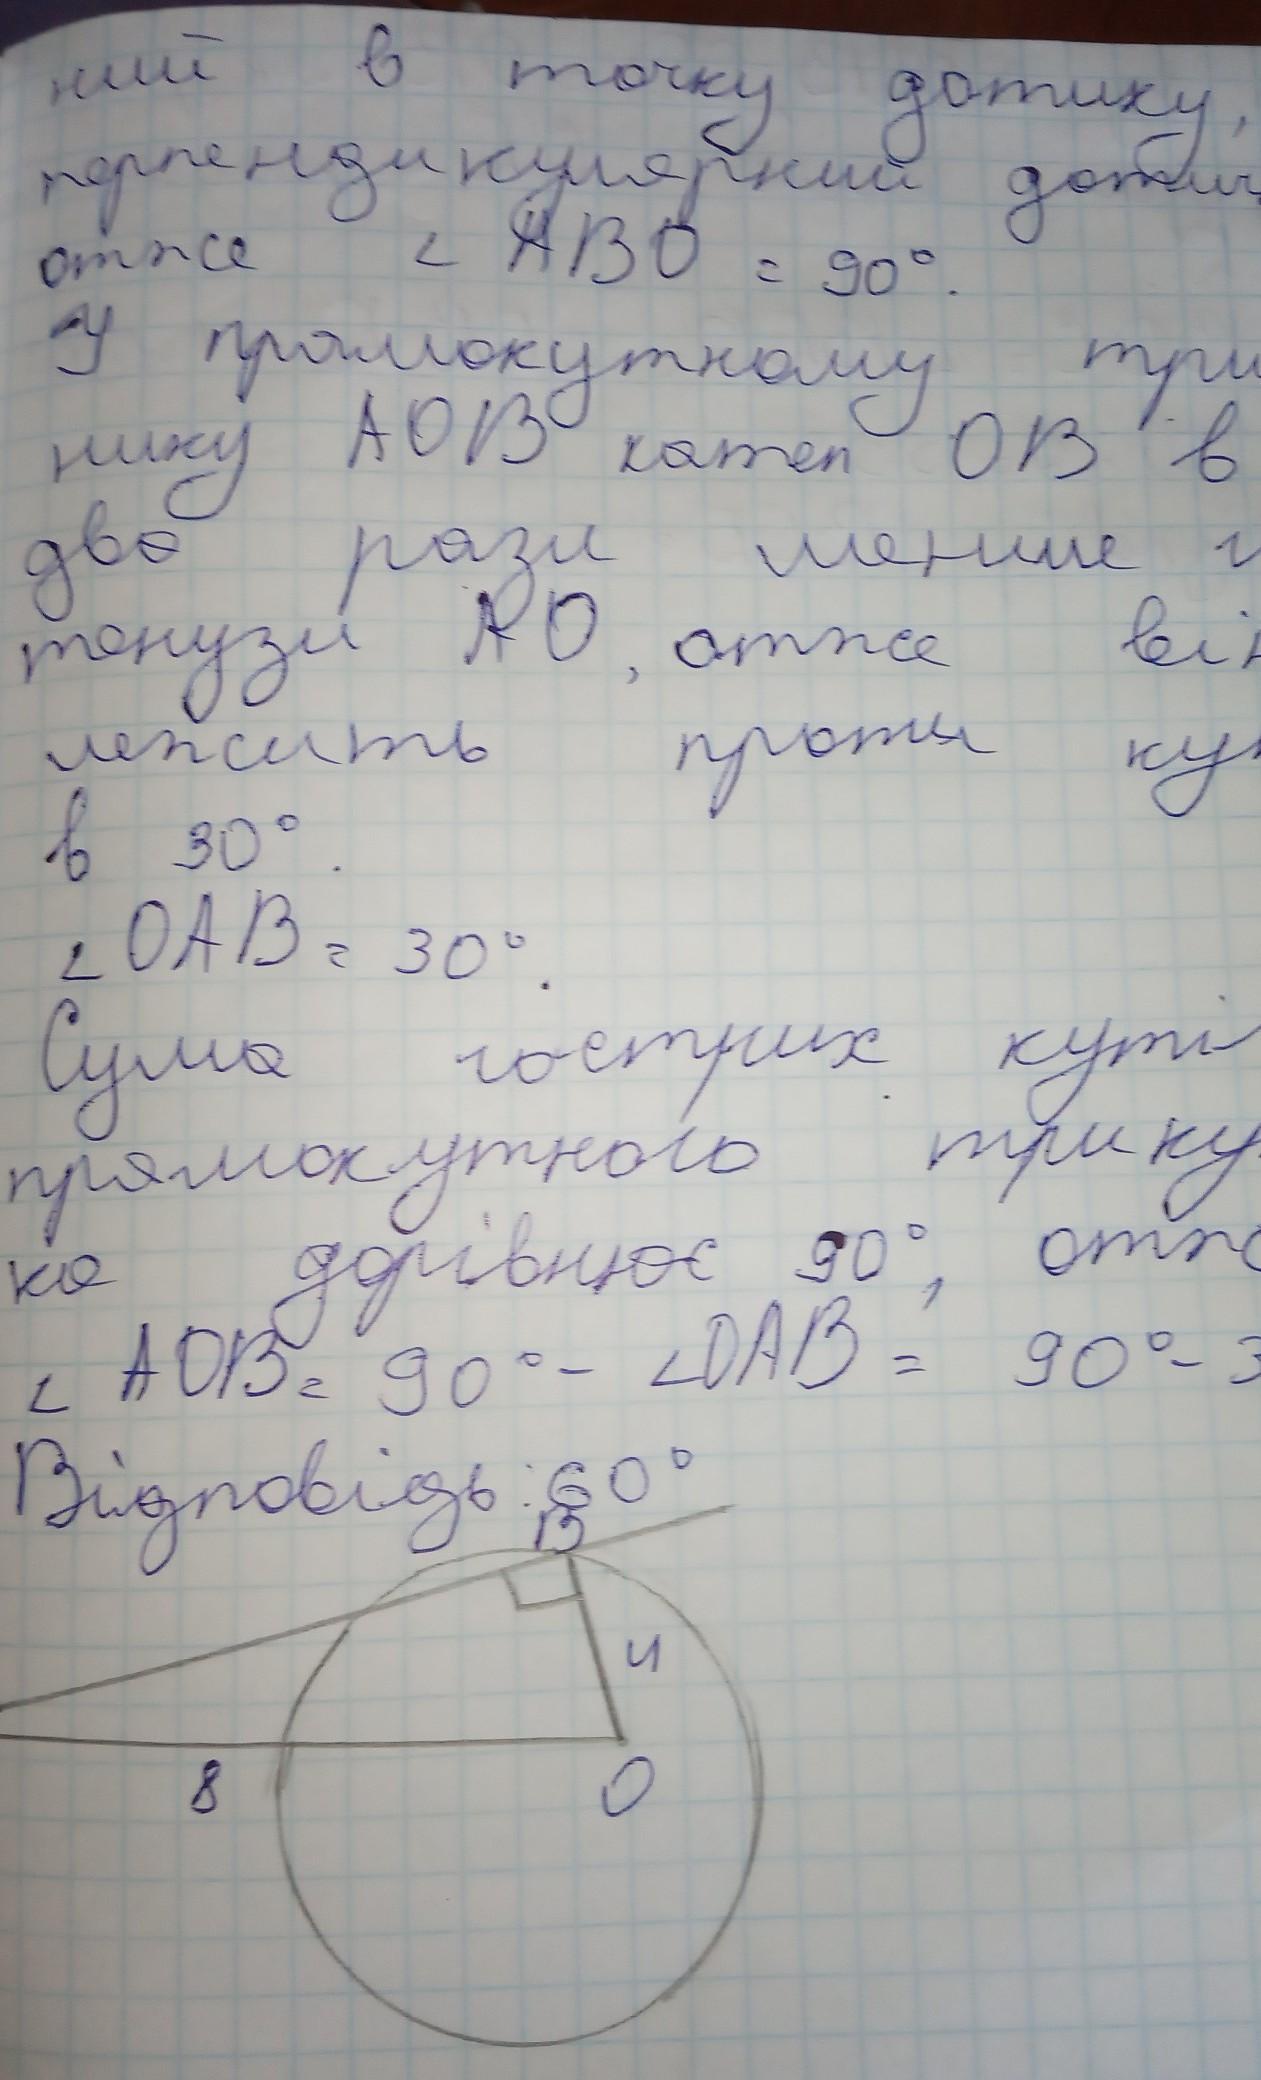 ний в точку дотику,
перпендикулярний дотич
отже < ABO = 90°.
У прямокутному три
нику AOB катеп OB в
два рази менше г
тенузи AO, отже він
лежить проти кут
в 30°.
< OAB = 30°.
Сума гострих куті
прямокутного трику
ка дорівнює 90°, отже
< AOB = 90° - <OAB = 90° - 3
Відповідь: 60°
B
4
8
O